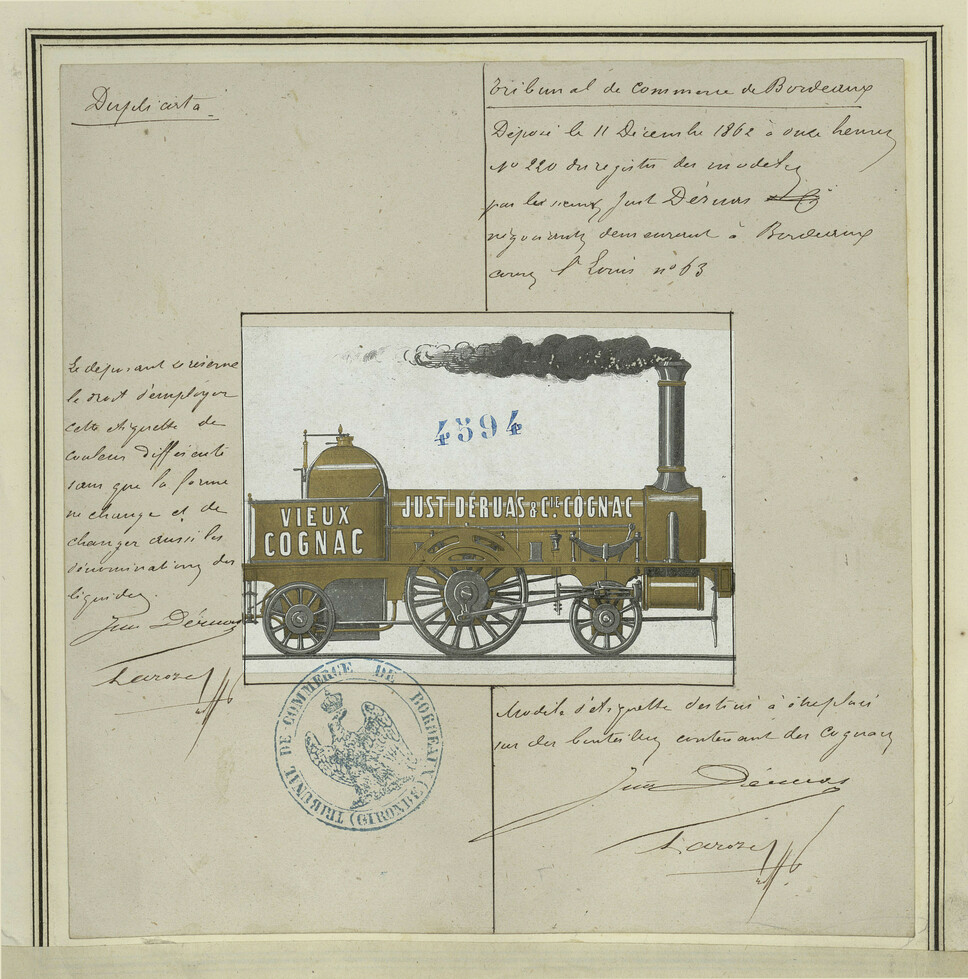 Duplicata
Tribunal de Commerce de Bordeaux
Déposé le 11 Décembre 1862 à onze heures
No 220 du registre des modeles
par les sieurs Just Déruas
négociants demeurant à Bordeaux
cours St Louis no 63
Le deposant se réserve
le droit d'employer
cette etiquette de
couleur différente
sans que la forme
ne change et de
changer aussi les
dénominations des
liquides.
Just Déruas
4594
JUST DÉRUAS & CIE. COGNAC
VIEUX
COGNAC
TRIBUNAL DE COMMERCE DE BORDEAUX
(GIRONDE)
Modele d'étiquette destiné à être placé
sur des bouteilles contenant des Cognacs
Just Déruas